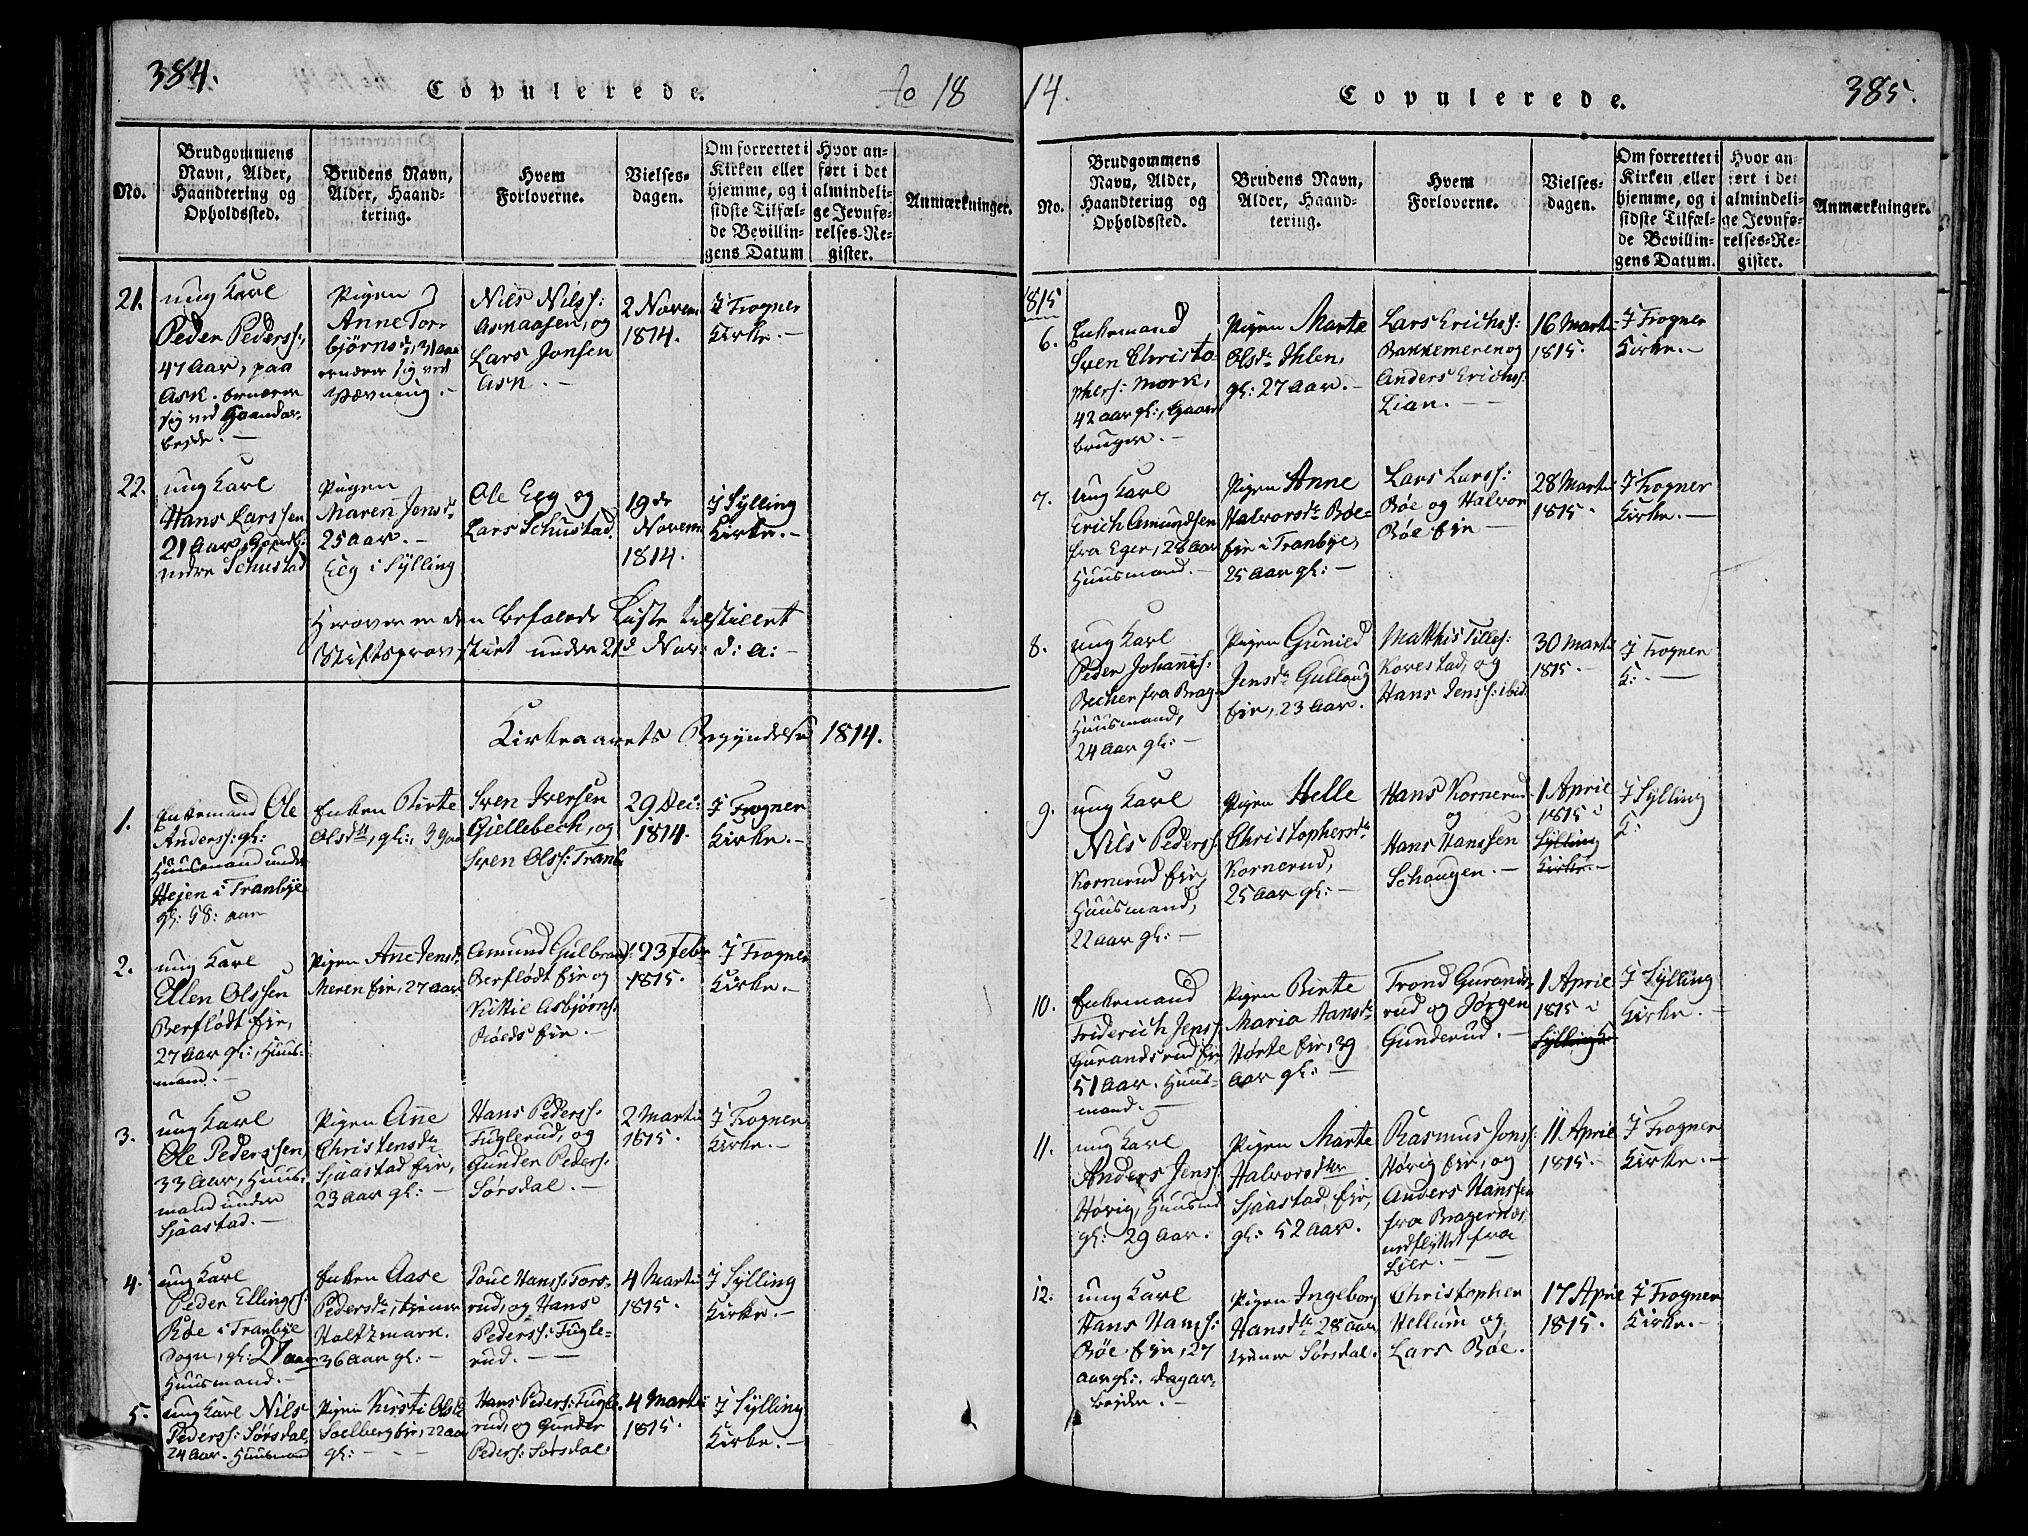 384.
Copulerede.
Ao 18
No.
Brudgommens
Navn, Alder,
Haandtering og
Opholdssted.
Brudens Navn,
Alder, Haand-
tering.
Hvem
Forloverne.
Vielses-
dagen.
Om forrettet i
Kirken eller
hjemme, og i
sidste Tilfæl-
de Bevillin-
gens Datum
Hvor an-
ført i det
almindeli-
ge Jevnfø-
relses-Re-
gister.
Anmærkninger.
21.
ung Karl
Peder Pederss:
47 Aar, paa
Ask. ernærer
sig ved Haandar-
beyde. —
Pigen
Anne Tor-
bjørnsdr, 31 aar
ernærer sig ved
Vævning. —
Nils Nilss:
Asnaasen, og
Lars Jonsen
Ask. —
2 Novem
1814.
I Frogner
Kirke. —
22.
ung Karl
Hans Larssen
21 Aar, Gaardb:
nedre Schustad
Pigen
Maren Jonsdr
25 aar. —
Egg i Sylling
Ole Egg og
Lars Schustad.
19de
Novem
1814.
I Sylling
Kirke. —
Herover er den befalede Liste tilstillet
Stiftsprovstiet under 21d Nov: d: a: —
Kirkeaarets Begyndelse 1814.
1.
Enkemand Ole
Anderss: gl:
Huusmand under
Hejen i Tranbye
gl: 58: aar
Enken Birte
Olsdtr, gl:
Sven Iversen
Gjellebech, og
Sven Olss: Tranb
29 Dec:
1814.
I Frogner
Kirke. —
2.
ung Karl
Ellen Olssen
Berflødt Eie,
27 Aar gl:, Huus-
mand. —
Pigen Ane Jensdr
Meren Eie, 27 aar
Amund Gulbrand:
Berflødt Eie og
Kittil Asbjørns:
Røeds Eie. —
23 Febr
1815.
I Frogner
Kirke. —
3.
ung Karl
Ole Pederssen
33 Aar, Huus-
mand under
Sjaastad. —
Pigen Ane
Christensdr
Sjaastad Eie,
23 Aar gl: —
Hans Pederss:
Fuglerud, og
Gunder Peders:
Sørsdal. —
2 Marti
1815.
I Frogner
Kirke. —
4.
ung Karl
Peder Ellings:
Røe i Tranbye
Sogn, gl: 27 aar
Huusmand. —
Enken Aase
Pedersdr, tjener
Holtzmark.
36 Aar gl: —
Poul Hanss: Tors-
rud, og Hans
Pederss: Fugle-
rud. —
4 Marti
1815.
I Sylling
Kirke. —
5.
ung Karl Nils
Pederss: Sørsdal,
24 Aar. Huusmand
Pigen Kirsti Olsdr
Solberg Eie, 22 aar
gl: — —
Hans Pederss: Fugle-
rud, og Gunder
Peders: Sørsdal.
4 Marti
1815.
I Sylling
Kirke. —
14.
Copulerede.
385.
No.
Brudgommens
Navn, Alder,
Haandtering og
Opholdssted.
Brudens Navn,
Alder, Haand-
tering.
Hvem
Forloverne.
Vielses-
dagen.
Om forrettet i
Kirken eller
hjemme, og i
sidste Tilfæl-
de Bevillin-
gens Datum.
Hvor an-
ført i det
almindeli-
ge Jevnfø-
relses-Re-
gister.
Anmærkninger.
1815
6.
Enkemand
Sven Christo
phers: Mork,
42 aar gl:, Gaard
bruger. —
Pigen Marte
Olsdr Ihlen,
gl: 27 aar. —
Lars Erichss:
Bakkemeren og
Anders Erichs:
Lian. —
16 Marti
1815.
I Frogner
Kirke. —
7.
Ung Karl
Erich Amundsen
fra Eger, 28 aar
Huusmand. —
Pigen Anne
Halvorsdr Bøe-
Eie i Tranbye,
25 Aar gl: —
Lars Larss:
Bøe og Halvor
Bøe Eie —
28 Marti
1815.
I Frogner
Kirke. —
8.
ung Karl
Peder Johanis:
Becher fra Brag-
Huusmand,
24 aar gl: —
Pigen Gunild
Jensdr Gulloug
Eie, 23 Aar.
Matthis Tilles:
Kovestad, og
Hans Jenss: ibid
30 Marti
1815. —
I Frogner
K: —
9.
ung Karl
Nils Pederss
Kornerud Eie,
Huusmand,
22 aar gl: —
Pigen Helle
Christophersdr
Kornerud,
25 Aar gl: —
Hans Kornerud
og
Hans Hanssen
Schougen. —
1 April
1815 i
Sylling
Kirke. —
I Sylling
K:
10.
Enkemand
Friderich Jens:
Gurandsrud Eie
51 aar. Huus-
mand. —
Pigen Birte
Maria Hansdr
Hørte Eie, 39
Aar gl: —
Trond Gurands-
rud og Jørgen
Gunderud. —
1 April
1815 i
Sylling K
I Sylling
Kirke. —
11.
ung Karl
Anders Jens:
Høvig, Huusmd
gl: 29 Aar.
Pigen Marte
Halvorsdtr
Sjaastad Eie,
gl: 52 Aar.
Rasmus Jons:
Høvig Eie, og
Anders Hanssen
fra Bragernes,
udflyttet fra
Lier. —
11 April
1815. —
I Frogner
Kirke. —
12.
ung Karl
Hans Hans:
Bøe Eie, 27
aar gl: Dagar-
bejder. —
Pigen Ingeborg
Hansdtr 28 aar
tjener Sørsdal.
Christopher
Hellum og
Lars Bøe.
17 April
1815.
I Frogner
Kirke. —